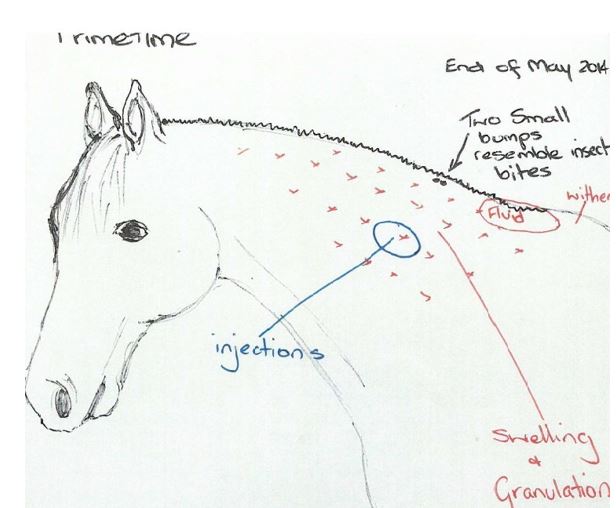 PrimeTime
End of May 2014
Two Small
bumps
resemble insect
bites
wither
Fluid
injections
Swelling
&
Granulation